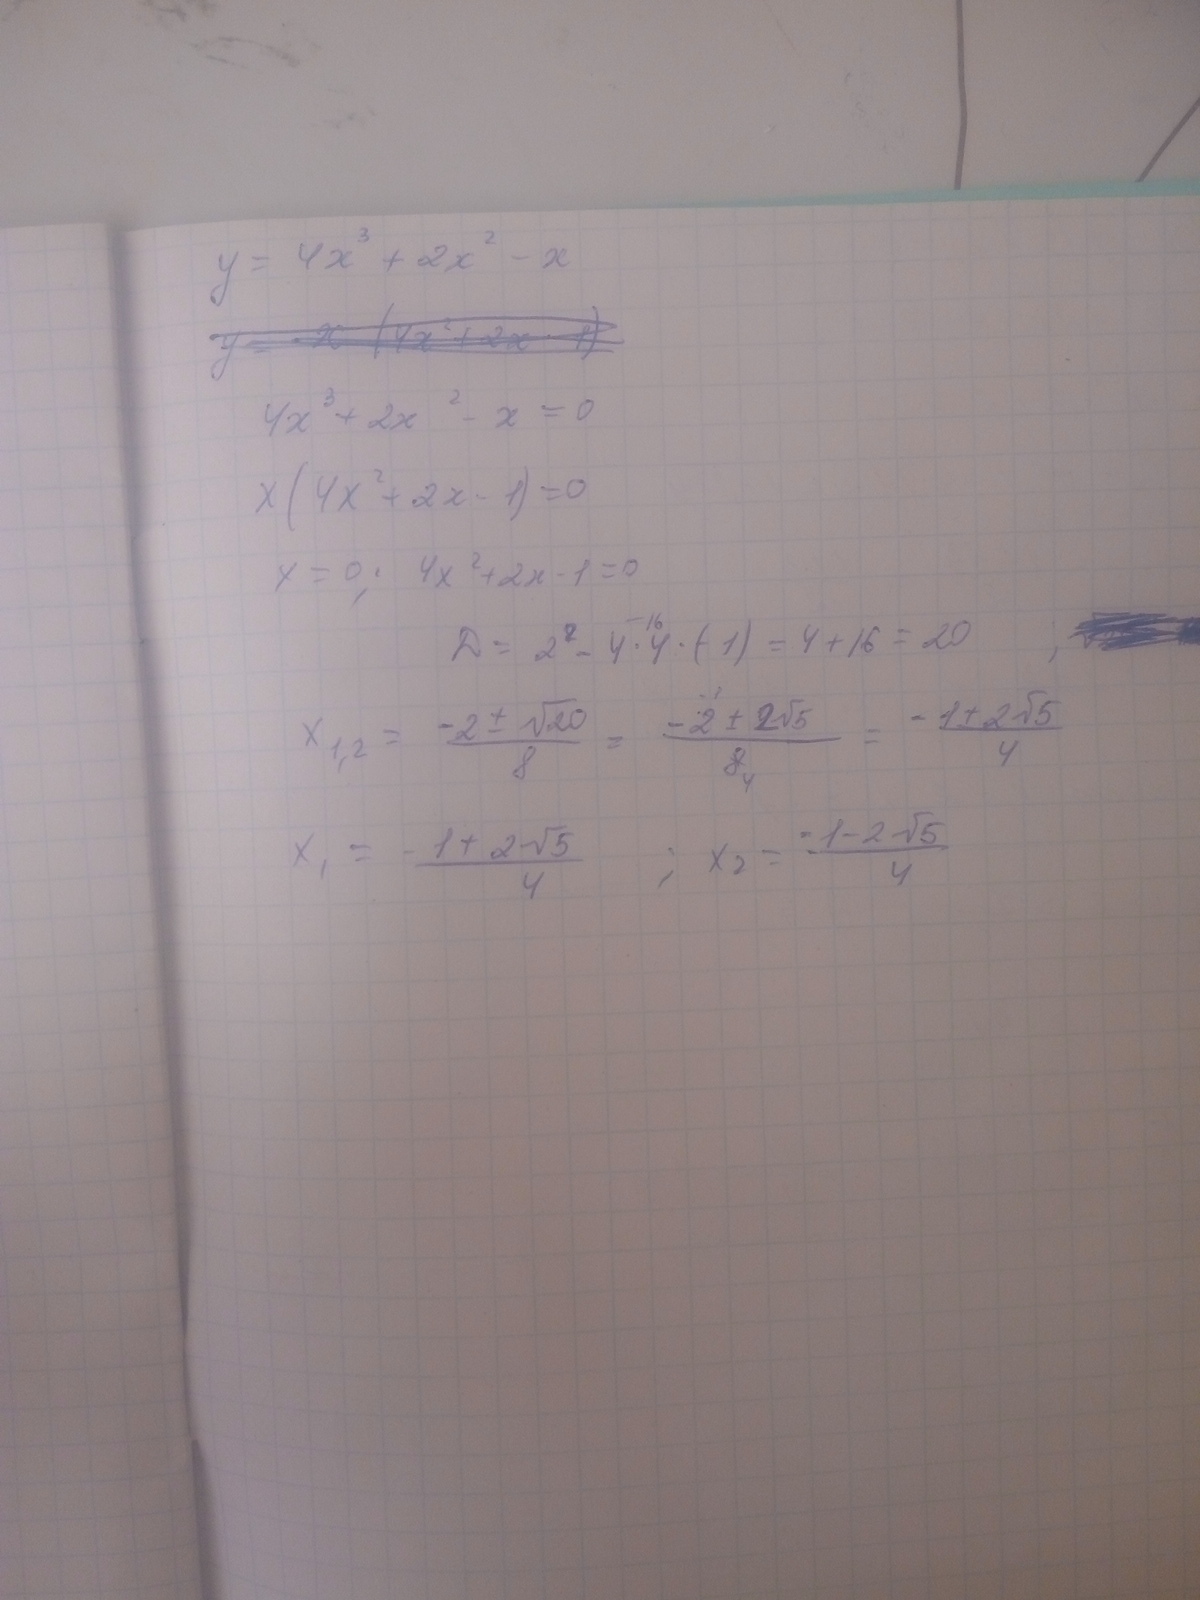 y = 4x³ + 2x² - x
y = x (4x² + 2x - 1)
4x³ + 2x² - x = 0
x(4x² + 2x - 1) = 0
x = 0; 4x² + 2x - 1 = 0
-16
D = 2² - 4·4·(-1) = 4 + 16 = 20 ;
x₁,₂ = (-2 ± √20)/8 = (-2 ± 2√5)/8 4 = -(1 ± 2√5)/4
x₁ = -(1 + 2√5)/4 ; x₂ = (-1 - 2√5)/4